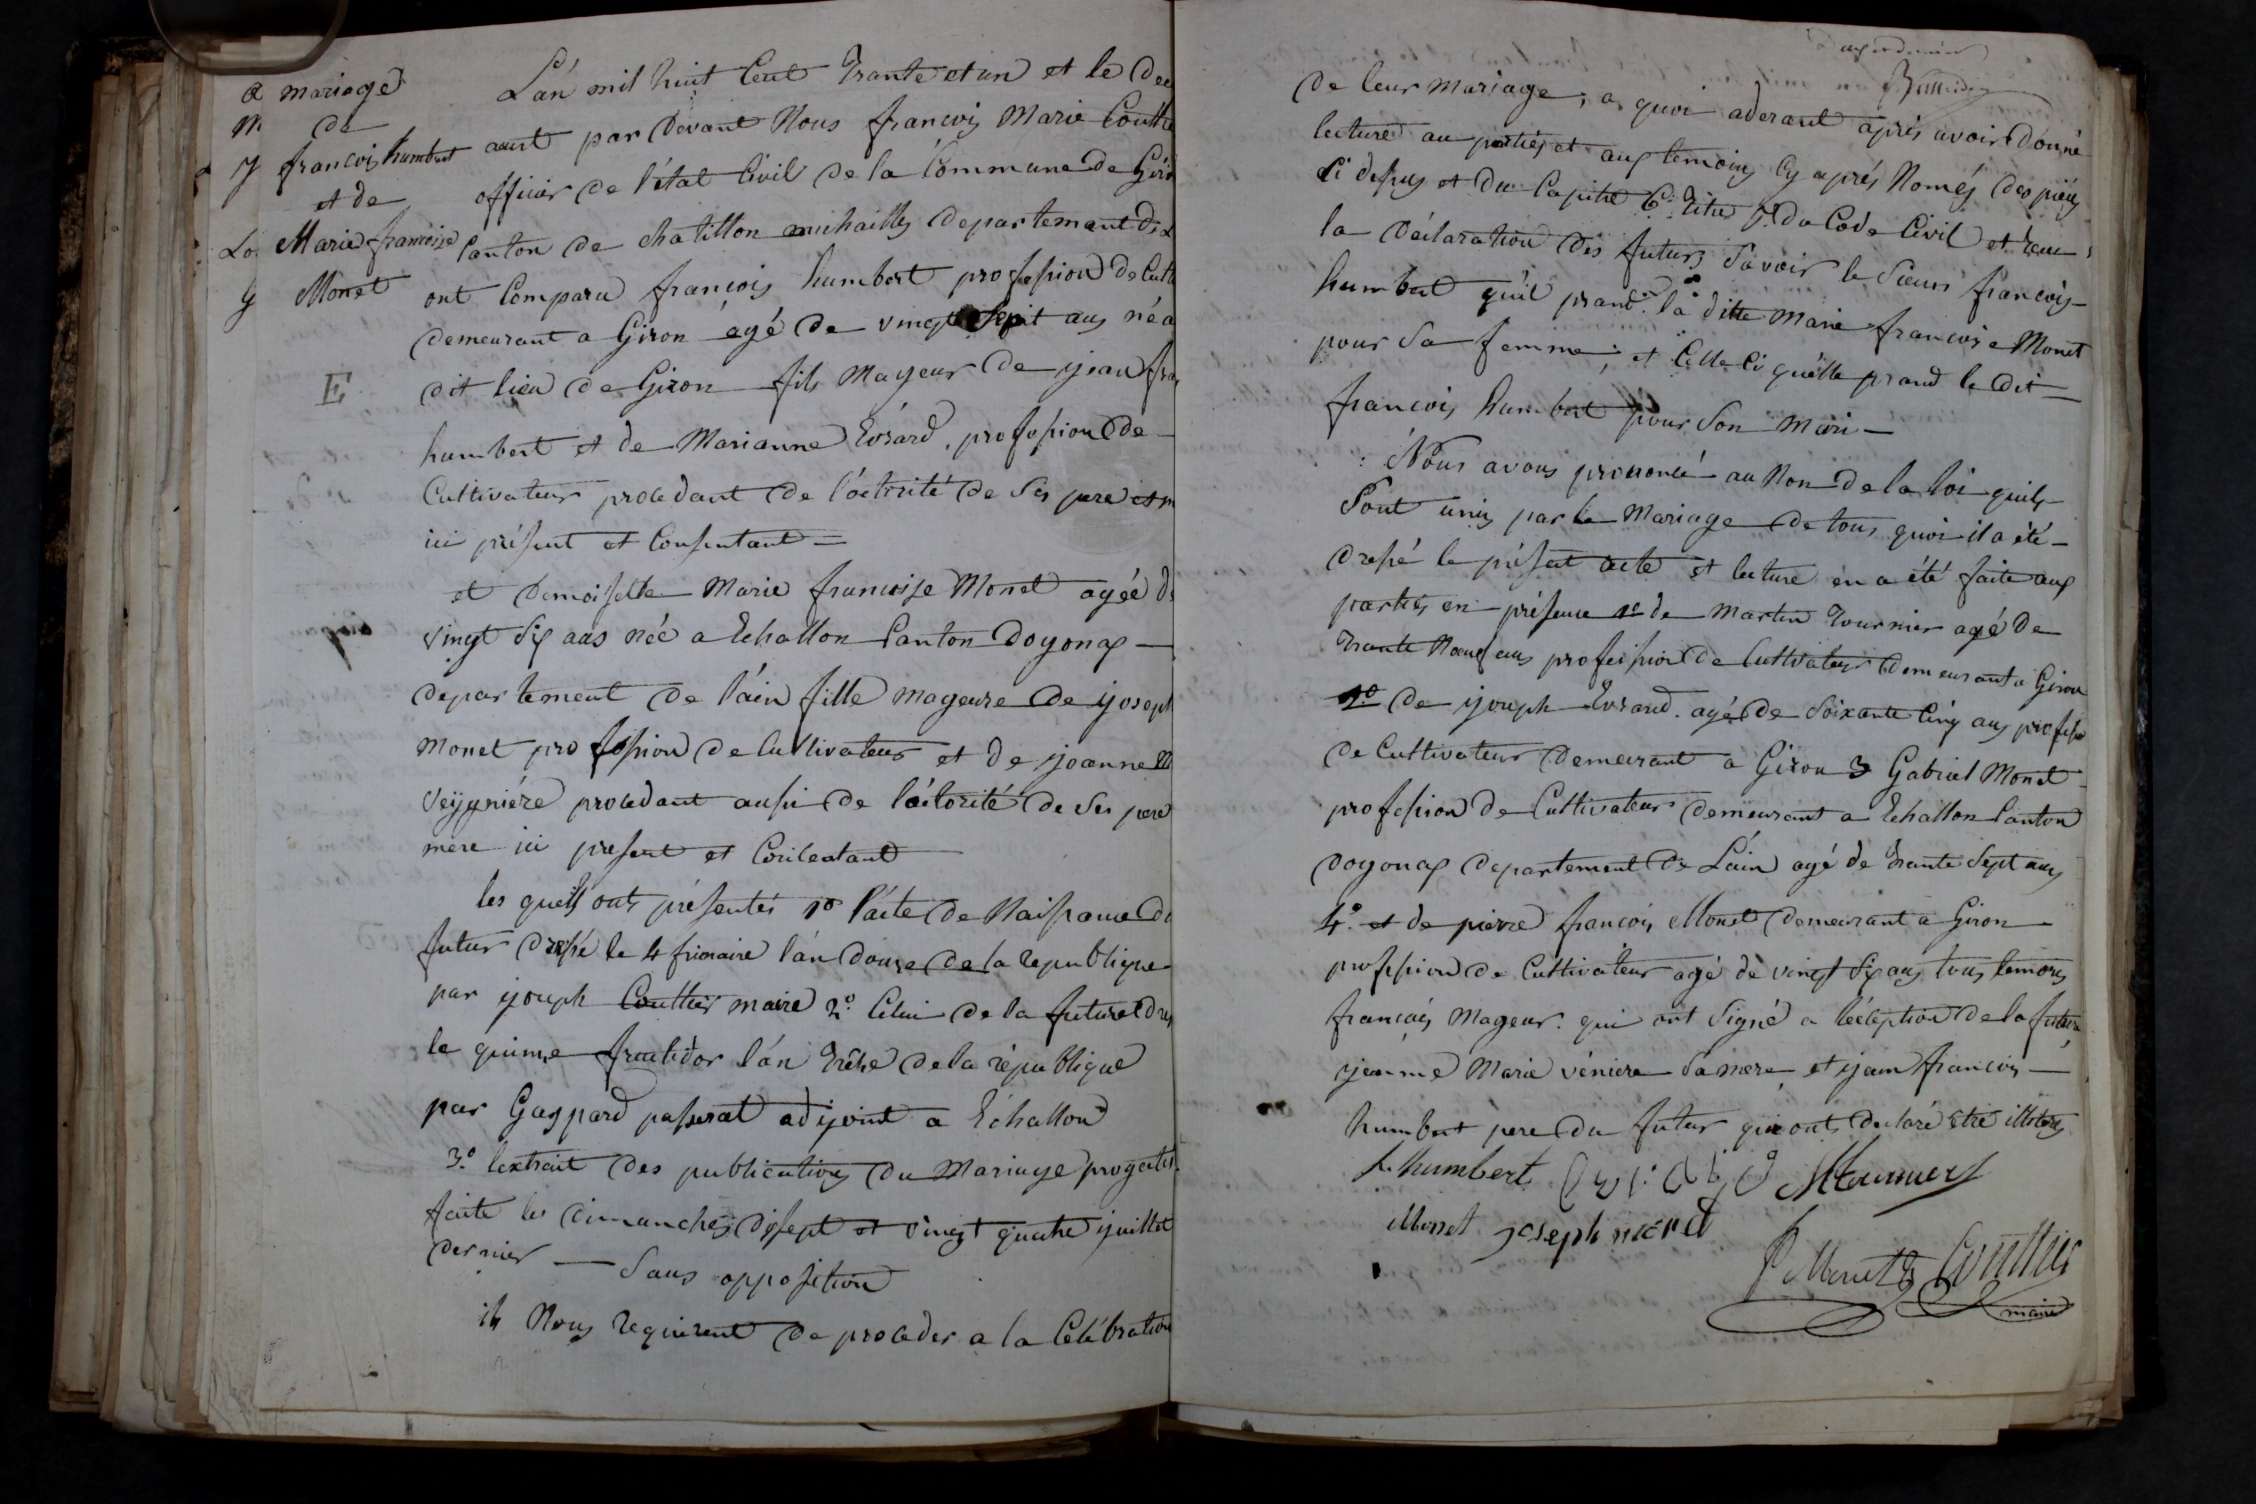 mariage
de
francois humbert
et de
Marie francoise
Monet
E
L'án mil huit Cent Trante et un et le deu
aout par Devant Nous francois Marie Coutti
officier de l'état Civil de la Commune de Giro
Canton de chatillon michailles departement de L
ont Comparu francois humbert profession de Culti
demeurant a Giron agé de vingt Sept ans né a
dit lieu de Giron fils Mageur de jean fra
humbert et de Marianne Evrard, profession de
Cultivateur procedant de l'óctorité de Ses pere et m
ici présent et Consentant
et Demoiselle Marie francoise Monet agée d
vingt Six ans née a Echallon Canton Doyonax
departement de l'áin fille mageure de joseph
Monet profession de Cultivateur et de joanne M
Veyyniére procedant aussi de l'óctorité de Ses pere
mere ici present et Concentant
les quels onts présentés 1º l'acte de Naissance du
futur dréssé le 4 frimaire l'án douze de la republique
par joseph Couttier maire 2º Celui de la future dres
le quinze fructidor l'án Trêse de la république
par Gaspard passerat adjoint a Echallon
3º lextrait des publications du Mariage progettes
faite les dimanches dixsept et vingt quatre juillet
dernier — Sans opposition
ils Nous requierent de proceder a la Célébration
de leur Mariage, a quoi aderant aprés avoir donné
lecture au partiés et aux temoins Cy aprés Només des piéces
Ci dessus et du Capitre 6e titre du Code Civil et recu
la Déclaration des futurs Savoir le Sieur francois
humbert qu'il prand la ditte Marie francoise Monet
pour Sa femme; et Celle Ci qu'elle prand le dit
francois humbert pour Son Mari
Nous avons prononcé au Nom de la loi quils
Sont unis par le Mariage de tous quoi il a été
dressé le présent acte et lecture en a été faite aux
parties en présence 1º de Martin Tournier agé de
Trante Neuf ans profession de Cultivateur demeurant a Giron
2º de joseph Evrard agé de Soixante Cinq ans profession
de Cultivateur Demeurant a Giron 3 Gabriel Monet
profession de Cultivateur demeurant a Echallon Canton
doyonax departement de L'áin agé de Trante Sept ans
4º et de pierre francois Monet demeurant a Giron
profession de Cultivateur agé de vingt Six ans tous temoins
francais Mageur. qui ont Signé a léxéption de la future
jeanne Marie véniere Sa mere et jean francois
humbert pere du futur qui onts declaré etre illétrés
f. humbert Evrard MTournier
Monet joseph monet
P f Monet Couttier
maire